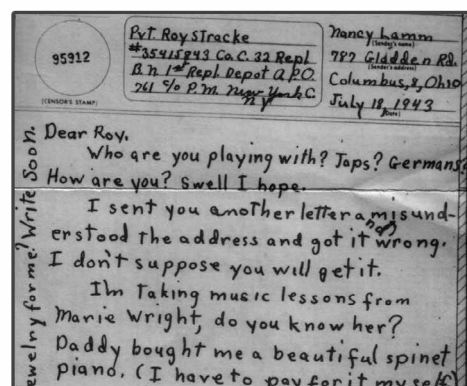 95912
(CENSOR'S STAMP)
Pvt. Roy Stracke
#35415843 Co. C. 32 Repl
B.n 1st Repl Depot A.P.O.
761 c/o P.M. New York C.
NY
Nancy Lamm
(Sender's name)
787 Gladden Rd.
(Sender's address)
Columbus, 8, Ohio
July 18, 1943
(Date)
Dear Roy.
Who are you playing with? Japs? Germans?
How are you? Swell I hope.
I sent you another letter and misund-
erstood the address and got it wrong.
I don't suppose you will get it.
I'm taking music lessons from
Marie Wright, do you know her?
Daddy bought me a beautiful spinet
piano. (I have to pay for it myself)
ewelry for me? Write Soon.